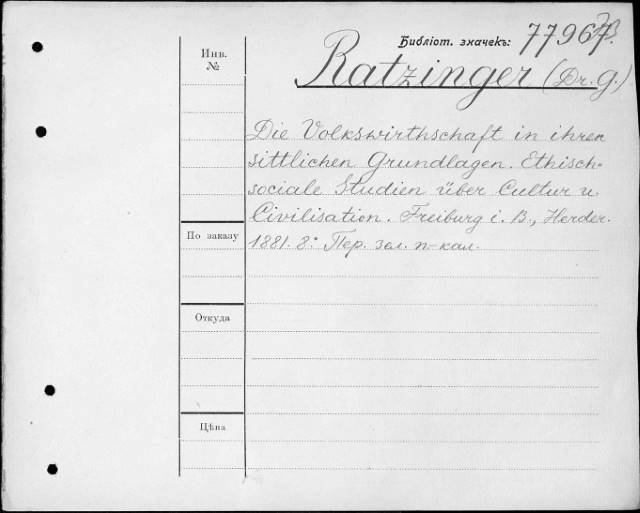 Библіот. значекъ: 7796
Инв.
№
Ratzinger (Dr. G.)
Die Volkswirthschaft in ihren
sittlichen Grundlagen. Ethisch-
sociale Studien über Cultur u.
Civilisation. Freiburg i. B., Herder.
1881. 8° Пер. зол. п-кал.
По заказу
Откуда
Цѣна